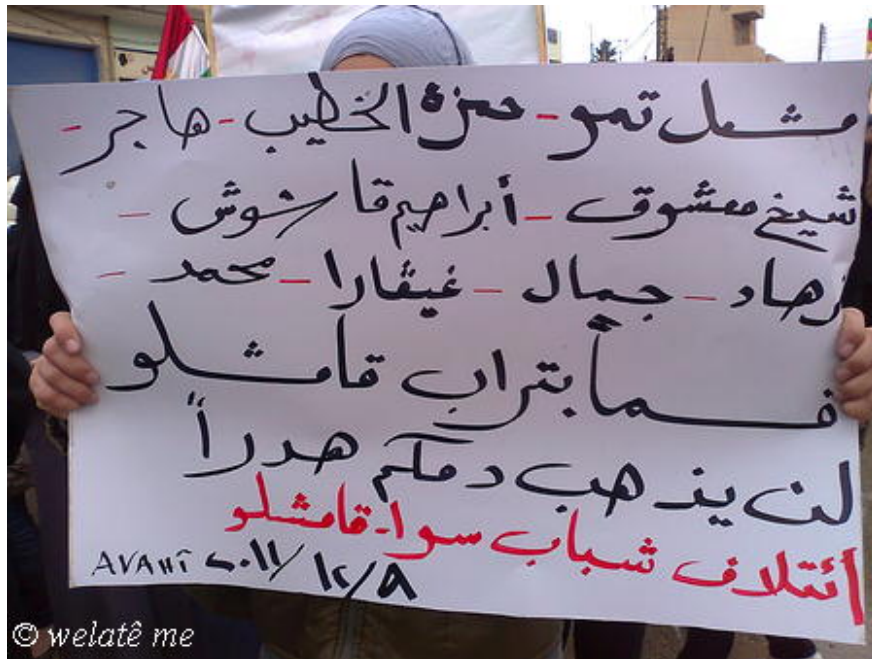 مشعل تمو - حمزة الخطيب - هاجر -
شيخ معشوق - أبراهيم قاشوش -
فرهاد - جمال - غيفارا - محمد -
قسماً بتراب قامشلو
لن يذهب دمكم هدراً
أئتلاف شباب سوا - قامشلو
AVAHÎ ٢٠١١/١٢/٩
© welatê me